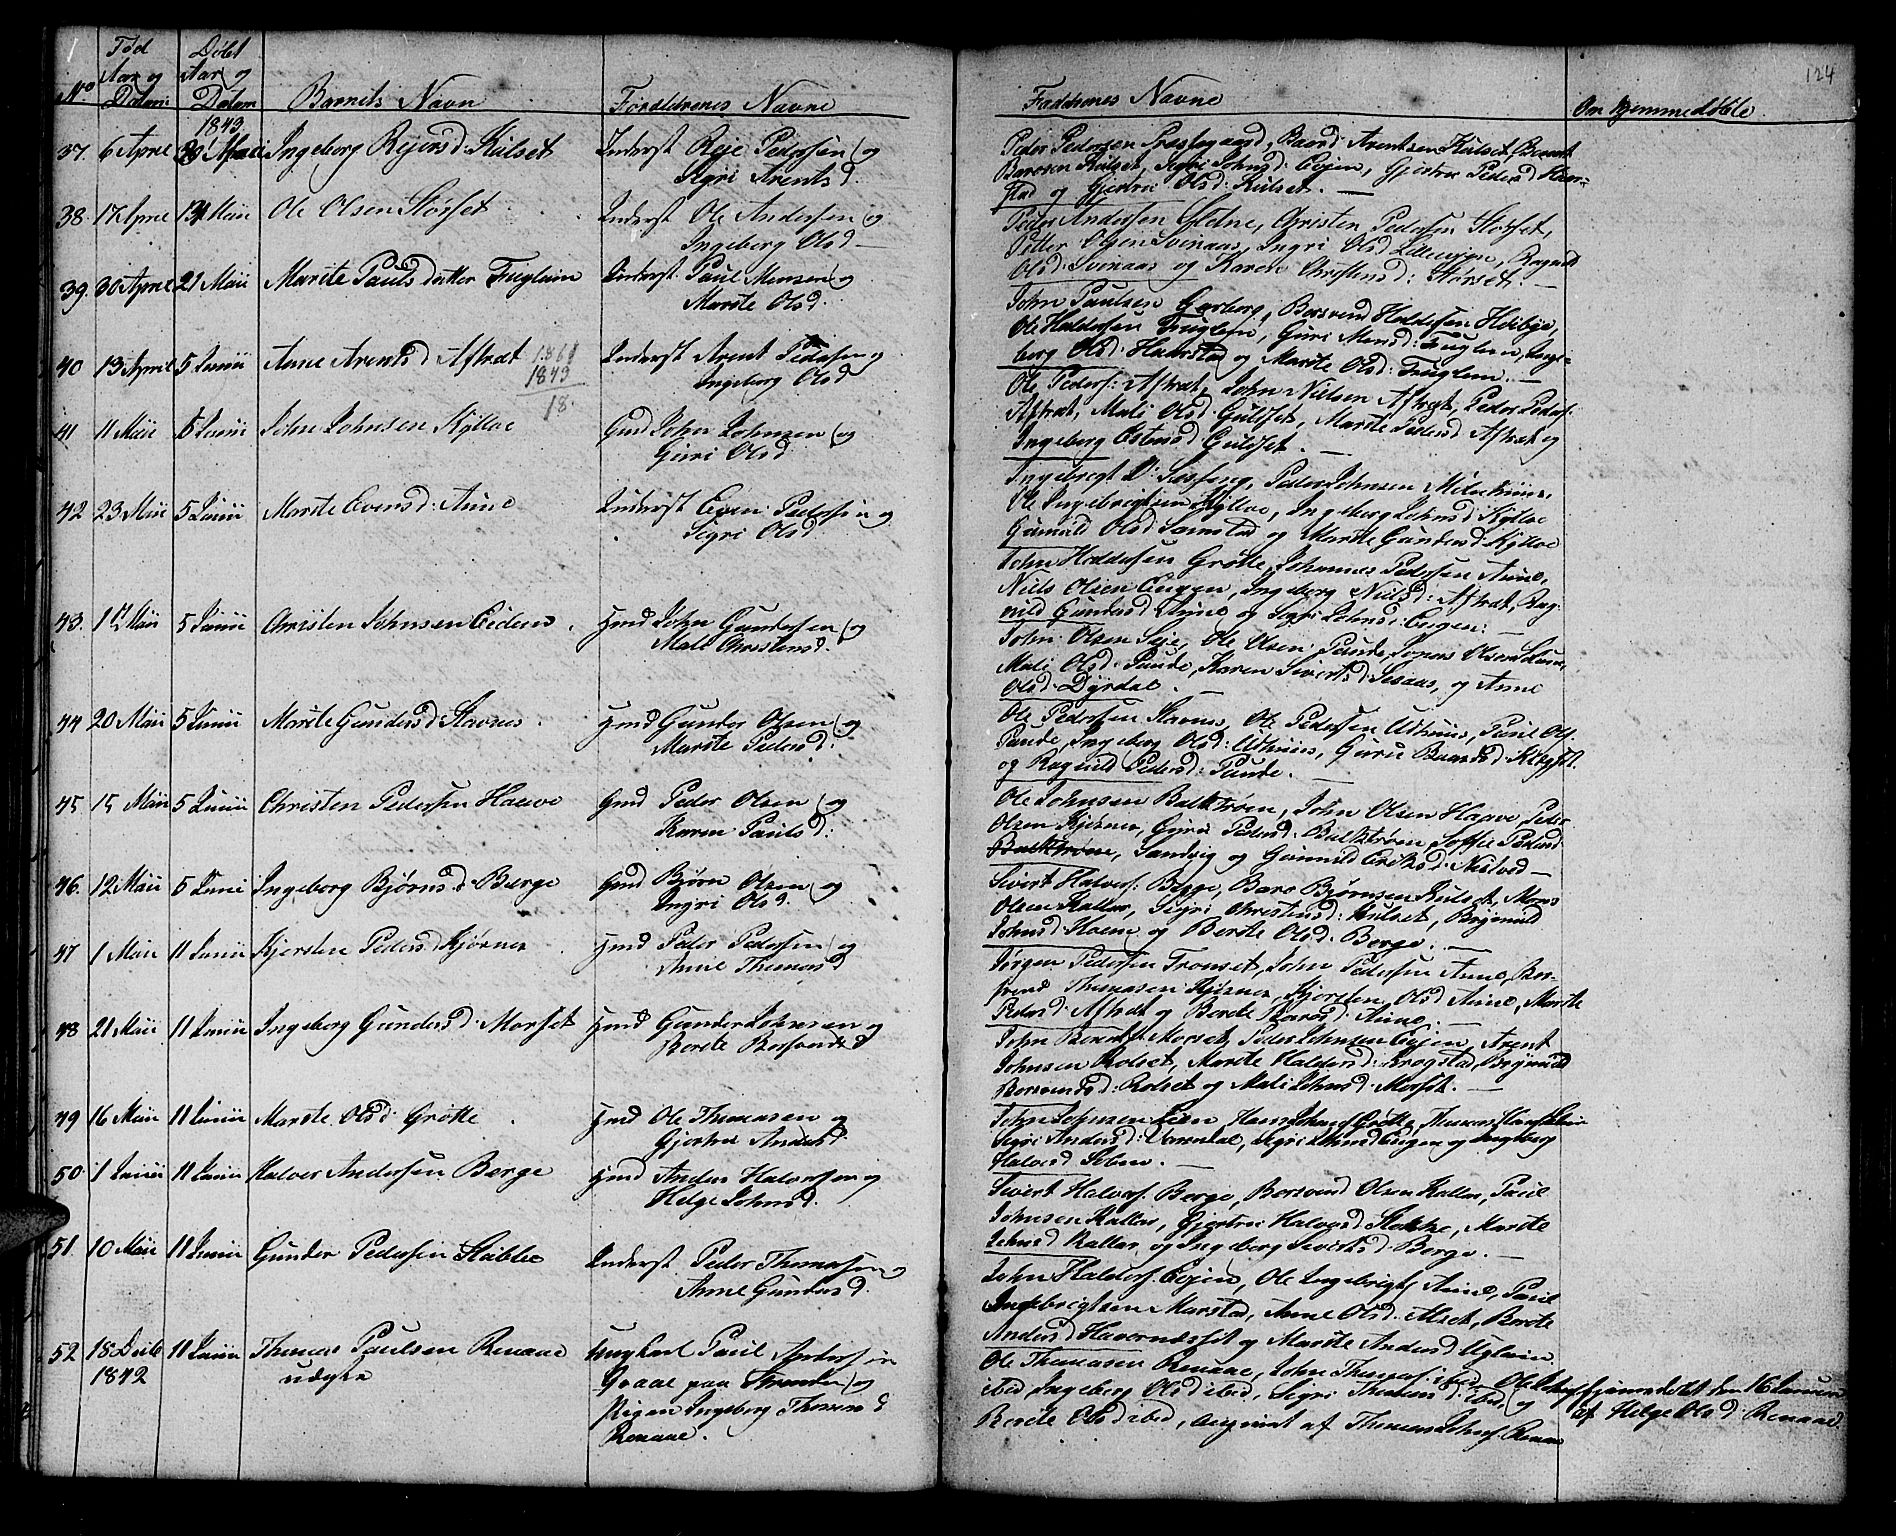 124
Nº
Fød Aar og Datum
Døbt Aar og Datum
Barnets Navn
Forældrenes Navne
Faddernes Navne
Om Hjemmedøbte
1843
37. 6 April Ingeborg Reiersd: Kulset
Inderst Reje Pedersen og
Sigri Arentsd
Peder Pedersen Præstegaard, Baard Arentsen Kulset, Berent
Baarsen Kulset, Sigri Johnsd: Eyjen, Gjertru Pedersd Haar-
stad og Gjertru Olsd: Kulset. —
38. 17 April 14 Maii Ole Olsen Storset
Inderst Ole Andersen og
Ingeborg Olsd —
Peder Andersen Sletne, Christen Pedersen Storset,
Petter Olsen Svinaas, Ingri Olsd Lillevign, Ragnild
Olsd: Svinaas og Karen Christensd: Storset. —
39. 30 April 21 Maii Marite Paulsdatter Fuglem
Inderst Paul Monsen og
Marite Olsd.
John Paulsen Garberg, Borsvend Haldorsen Hoibye,
Ole Haldorsen Fuglem, Guri Monsd: Fuglem, Inge-
borg Olsd: Haarstad og Marite Olsd: Fuglem. —
40 13 April 5 Junii Anne Arentsd Aftret
1861
1843
18.
Inderst Arent Pedersen og
Ingeborg Olsd
Ole Peders: Aftret, John Nielsen Aftret, Peder Peders:
Aftret, Mali Olsd: Gulset, Marite Pedersd Aftret og
Ingeborg Ostensd Gulset. —
41 11 Maii 5 Junii John Johnsen Kylloe
Gmd John Johnsen og
Guri Olsd
Ingebregt Peder Johnsen
Ole Ingebrigtsen Kylloe, Ingeborg Johnsd: Kylloe
Gunild Olsd Samstad og Marite Gundersd Kylloe
42 23 Maii 5 Junii Marite Evensd: Aune
Inderst Even Pedersen og
Sigri Olsd
John Haldorsen Grøtte, Johannes Pedersen Aune,
Niels Olsen Eugen, Ingeborg Nielsd: Aftret, Rag-
nild Gundersd Aune og Sigri Johnsd: Eugen: —
43. 1 Maii 5 Junii Christen Johnsen Eidem
Hmd John Gundersen og
Mali Christensd.
John Olsen Seje, Ole Olsen Pande, Olsen
Mali Olsd: Pande, Karen Sivertsd: Sesaas, og Anne
Olsd: Dyrdal. —
44 20 Maii 5 Junii Marite Gundersd Stavnes
Hmd Gunder Olsen og
Marite Pedersd:
Ole Pedersen Stavnes, Ole Pedersen Udhuus, Paul Ols:
Pande, Ingeborg Olsd: Udhuus, Guru Baardsd:
og Ragnild Pedersd: Pande. —
45 15 Maii 5 Junii Christen Pedersen Haave
Gmd Peder Olsen og
Karen Paulsd:
Ole Johnsen Balstrøen, John Olsen Haave, Peder
Olsen Kjøsnes, Guru Pedersd. Balstrøen Sophie Pedersd
Balstrøen, Sandvig og Gunnild Eriksd:
46. 12 Maii 5 Juni Ingeborg Bjørnsd: Berge
Gmd Bjørn Olsen og
Ingri Olsd.
Sivert Halvors: Berge, Baro Bjørnsen Kulset, Mons
Olsen Kallar, Sigri Christensd: Kulset, Brynnild
Johnsd Moen og Berite Olsd: Berge. —
47 1 Maii 11 Junii Kjersten Pedersd Kjøsnes
Hmd Peder Pedersen og
Anne Thomasd
Jørgen Pedersen Tronset, John Pedersen Aune, Bor-
svend Thomasen Kjøsnes, Kjersten Olsd Aune, Marite
Pedersd: Aftret og Berite Larsd: Aune. —
48 21 Maii 11 Junii Ingeborg Gundersd: Morset
Hmd Gunder Johnsen og
Berete Borsvendsd
John Berents: Morset, Peder Johnsen Eyjen, Arent
Johnsen Rolset, Marite Haldorsd: Krogstad, Brynild
Borsvendsd: Rolset og Mali Johnsd: Morset. —
49 16 Maii 11 Junii Marite Olsd: Grøtte
Hmd Ole Thomasen og
Gjertru Andersd.
John Johnsen Hans Grøtte, Thomas
Sigri Andersd: Sigri Johnsd Eugen og Ingeborg
Halvorsd Selem. —
50 1 Junii 11 Junii Halvor Andersen Berge
Hmd Anders Halvorsen og
Helge Johnsd.
Sivert Halvors: Berge, Borsvend Olsen Kallar, Paul
Johnsen Kallar, Gjertru Halvorsd: Stokke, Marite
Johnsd Kallar og Ingeborg Sivertsd: Berge. —
51. 10 Maii 11 Junii Gunder Pedersen Stubbe
Inderst Peder Thomasen og
Anne Gundersd.
John Haldors: Eyjen, Ole Ingebrigts Aune, Paul
Ingebrigtsen Marstad, Anne Olsd: Alset, Berete
Andersd Havernesset og Marite Andersd Uglem.
52 18 Decbr 11 Junii Thomas Paulsen Renaae
1842
uægte
Ungkarl Paul Andersen
Graae paa Stranden og
Pigen Ingeborg Thomasd
Renaae.
Ole Thomasen Renaae, John Thomas: ibid
ibid, Ingeborg Olsd ibid, Sigri Thomasd: ibid, og
Berete Olsd ibid, af Thomas Johns: Renaae
Hjemmedøbt den 16 Januar
af Helge Olsd: Renaae